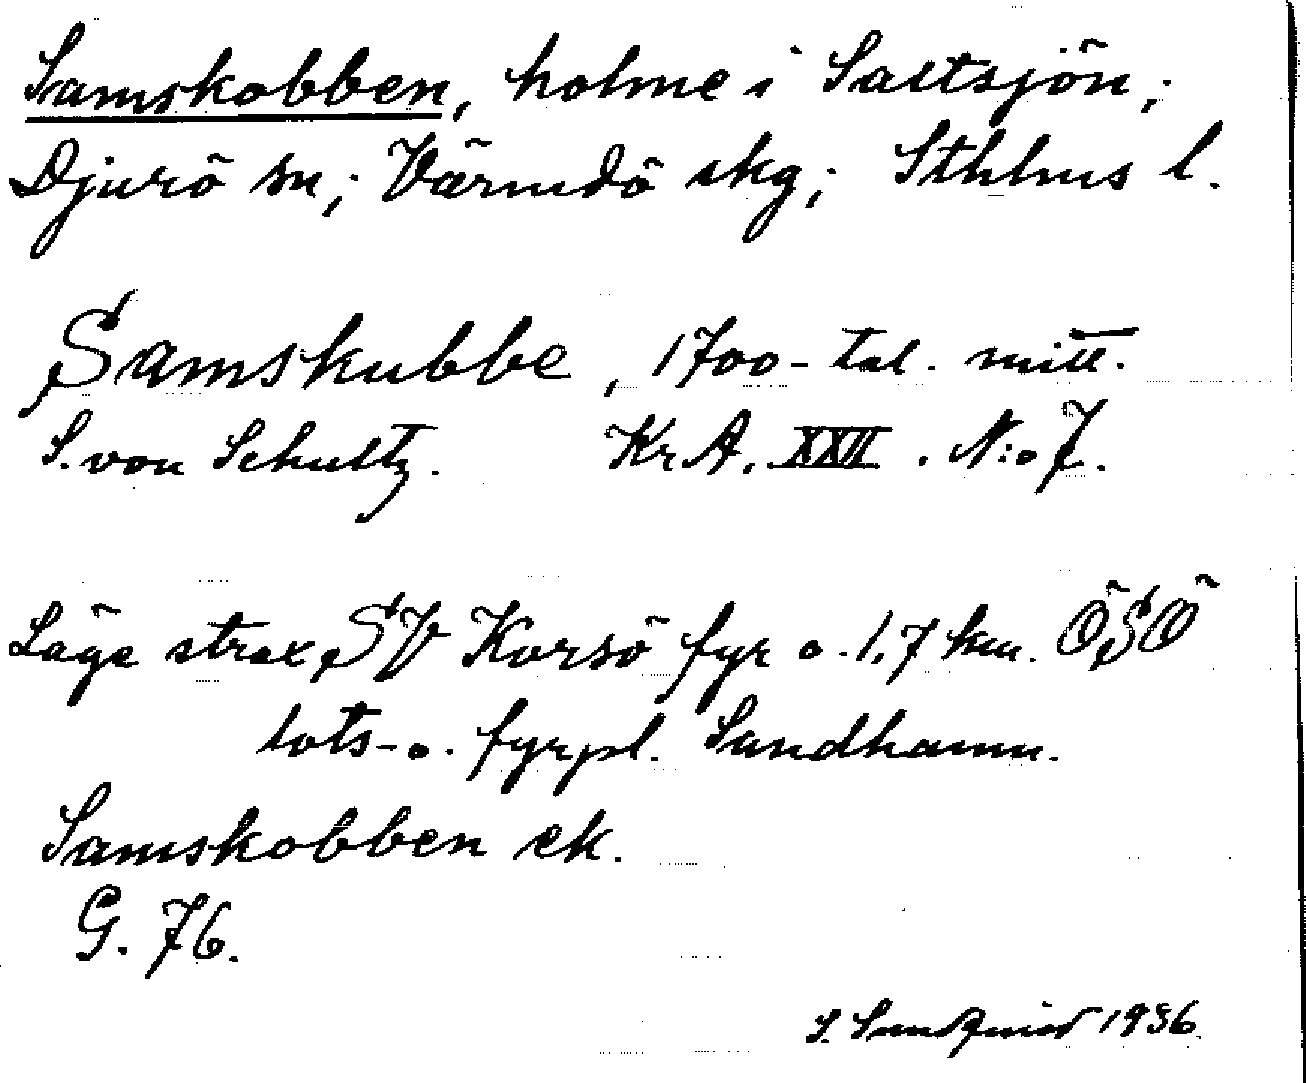 Samskobben, holme i Saltsjön;
Djurö sn; Värmdö skg; Sthlms l.
Samskubbe, 1700-tal. mitt.
S. von Schultz. Kr A. XXII. N:o 7.
Läge strax SV Korsö fyr o. 1,7 km. ÖSÖ
lots- o. fyrpl. Sandhamn.
Samskobben ek.
G. 76.
1936